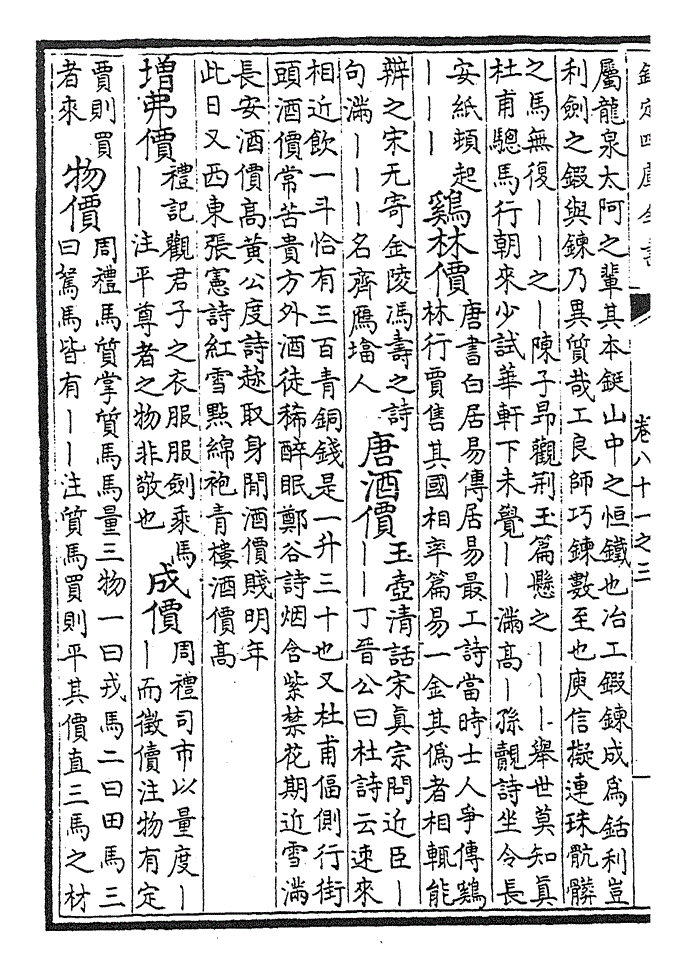 欽定四庫全書
卷八十一之三
屬龍泉太阿之輩其本鋌山中之恒鐵也冶工鍜鍊成為銛利豈
利劍之鍜與鍊乃異質哉工良師巧鍊數至也庾信擬連珠骯髒
之馬無復｜｜之｜陳子昻觀荆玉篇懸之｜｜｜舉世莫知真
杜甫驄馬行朝來少試華軒下未覺｜｜滿髙｜孫覿詩坐令長
安紙頓起
｜｜｜
鷄林價
唐書白居易傳居易最工詩當時士人爭傳鷄
林行賈售其國相率篇易一金其偽者相輒能
辨之宋无寄金陵馮壽之詩
句滿｜｜｜名齊鴈㙮人
唐酒價
玉壺清話宋真宗問近臣｜
｜丁晉公曰杜詩云速來
相近飲一斗恰有三百青銅錢是一升三十也又杜甫偪側行街
頭酒價常苦貴方外酒徒稀醉眠鄭谷詩烟含紫禁花期近雪滿
長安酒價髙黃公度詩趂取身閒酒價賤明年
此日又西東張憲詩紅雪點綿袍青樓酒價髙
増弗價
禮記觀君子之衣服服劍乘馬
｜｜注平尊者之物非敬也
成價
周禮司市以量度｜
｜而徵儥注物有定
賈則買
者來
物價
周禮馬質掌質馬馬量三物一曰戎馬二曰田馬三
曰駑馬皆有｜｜注質馬買則平其價直三馬之材
一